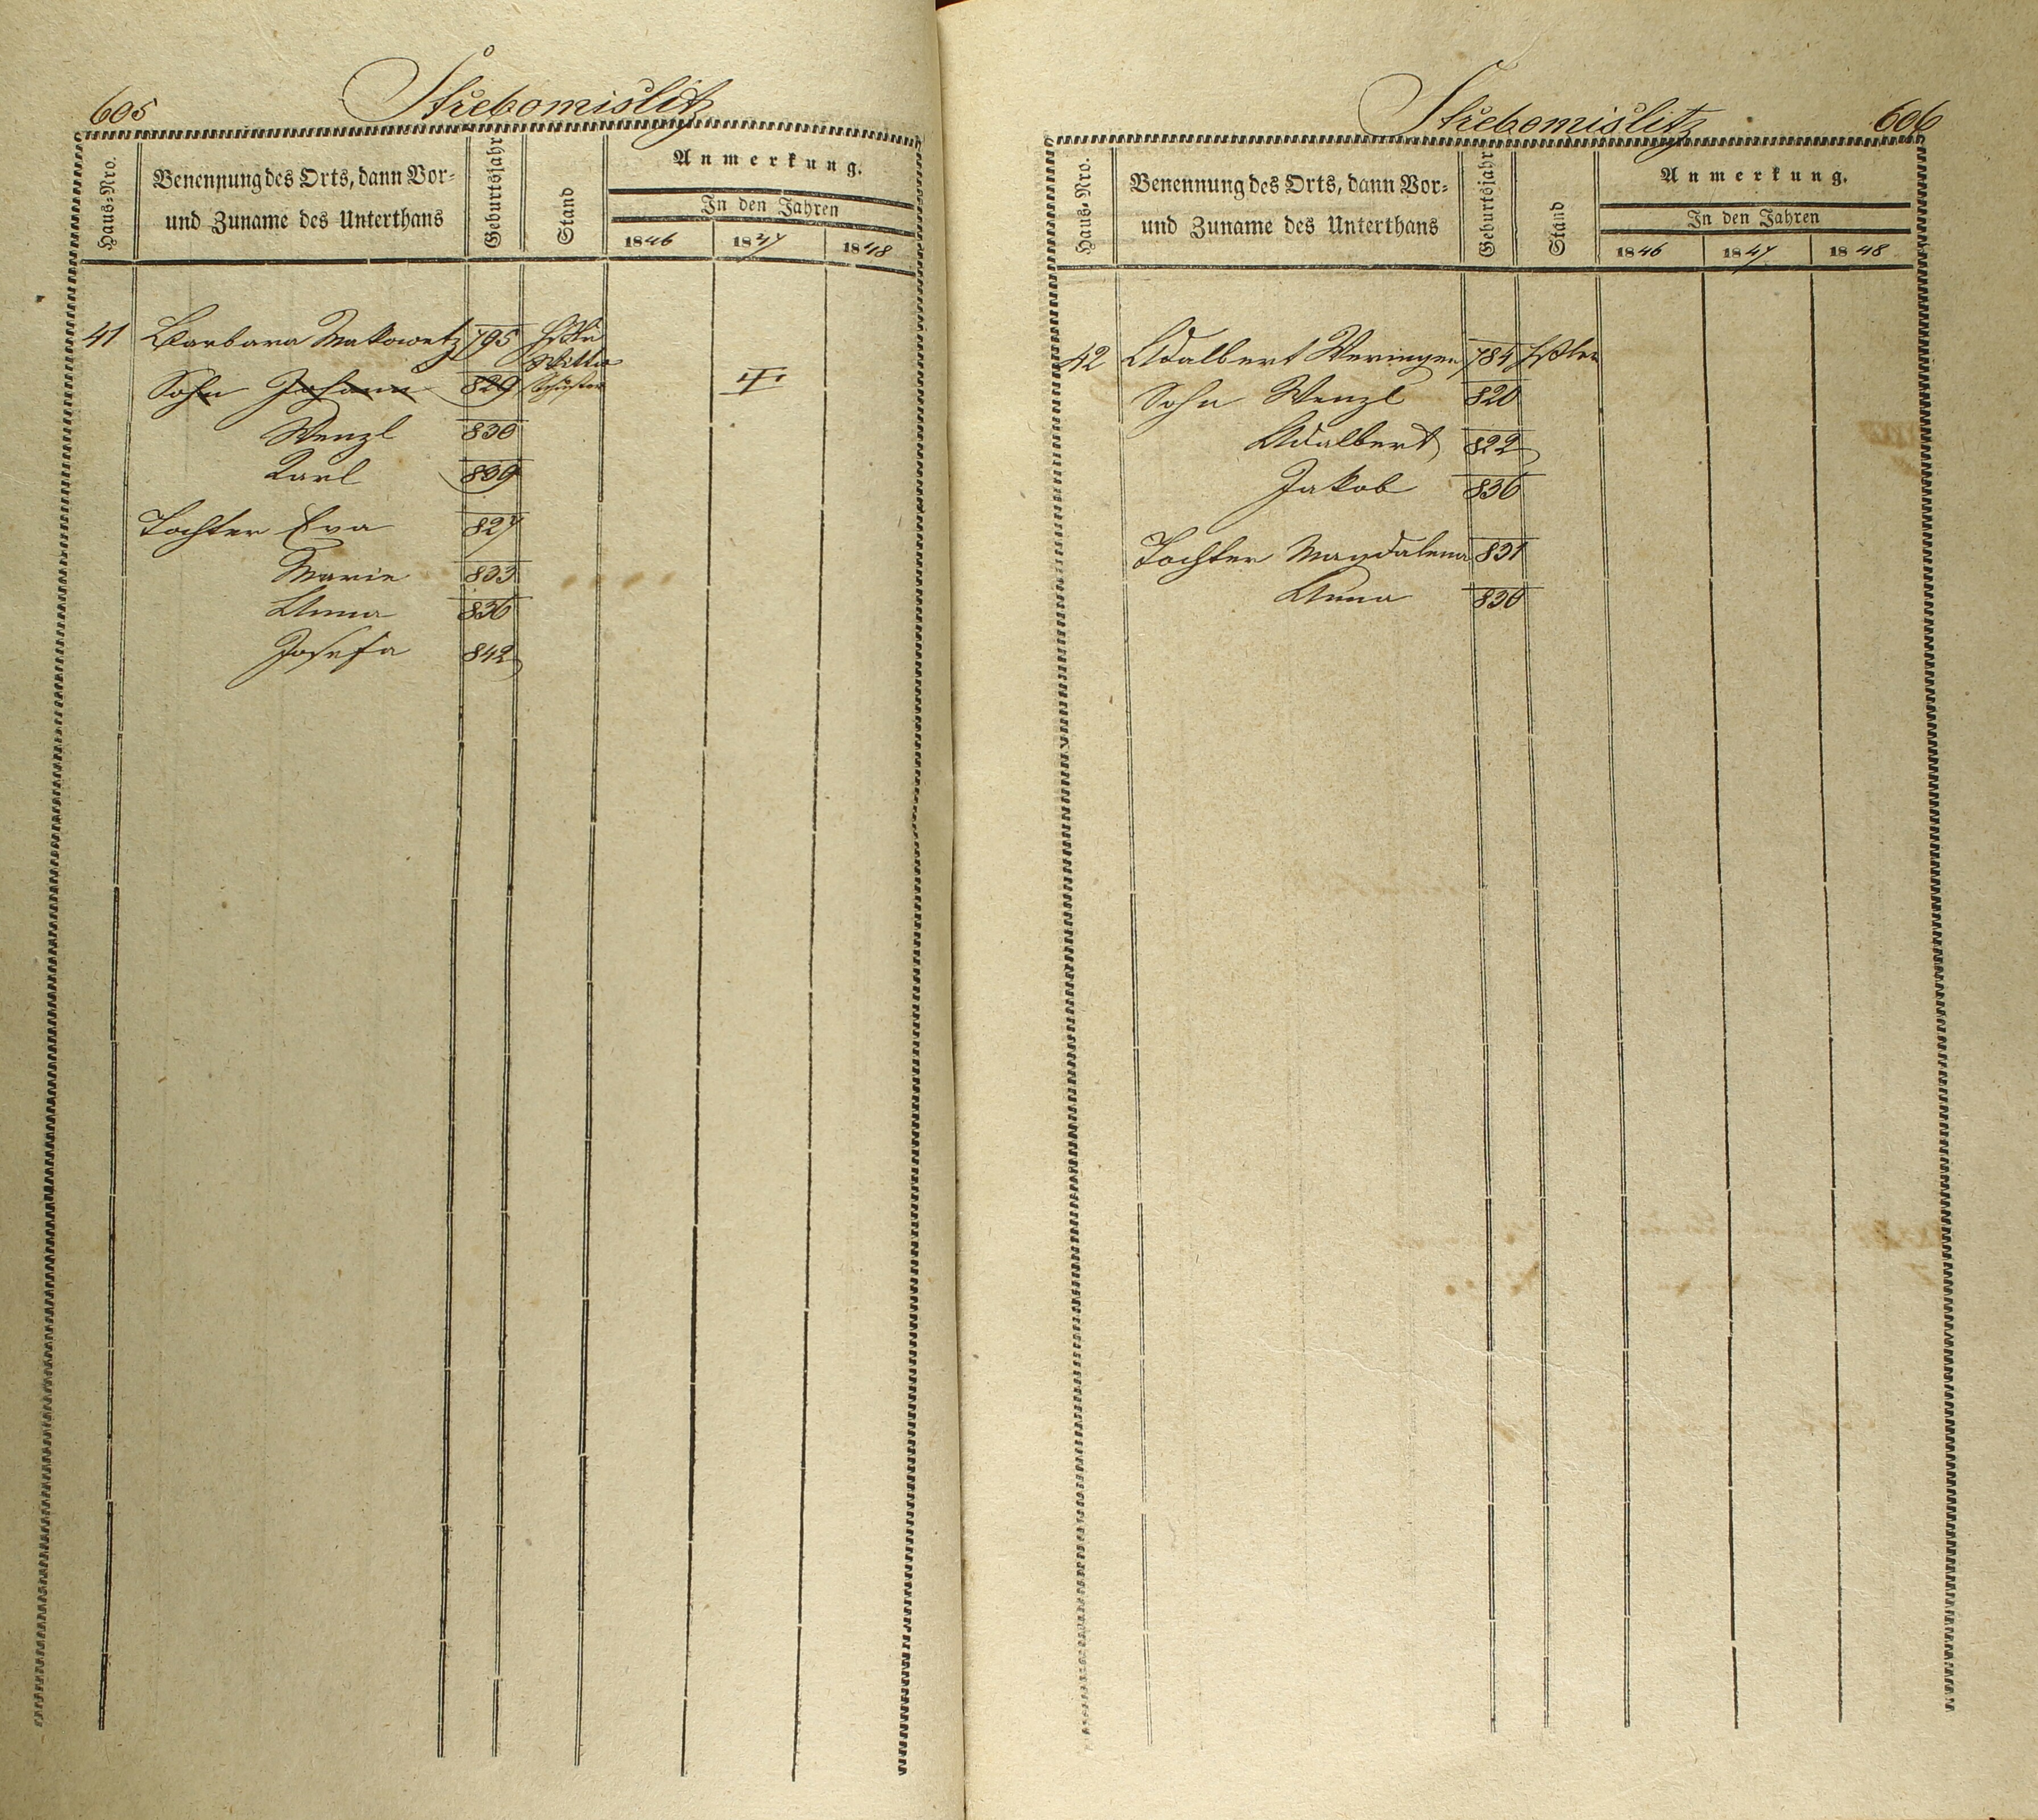 605 Střebomislitz
Haus-Nro.
Benennung des Orts, dann Vor-
und Zuname des Unterthans
Geburtsjahr
Stand
Anmerkung.
In den Jahren
1846 1847 1848
41 Barbara Makowetz 795
Witwe
Sohn Johann 829 Schuster
Wenzl 830
Karl 839
Tochter Eva 827
Marie 833
Anna 836
Josefa 842
Střebomislitz 606
Haus-Nro.
Benennung des Orts, dann Vor-
und Zuname des Unterthans
Geburtsjahr
Stand
Anmerkung.
In den Jahren
1846 1847 1848
42 Adalbert 784
Sohn Wenzl 820
Adalbert 822
Jakob 836
Tochter Magdalena 831
Anna 830